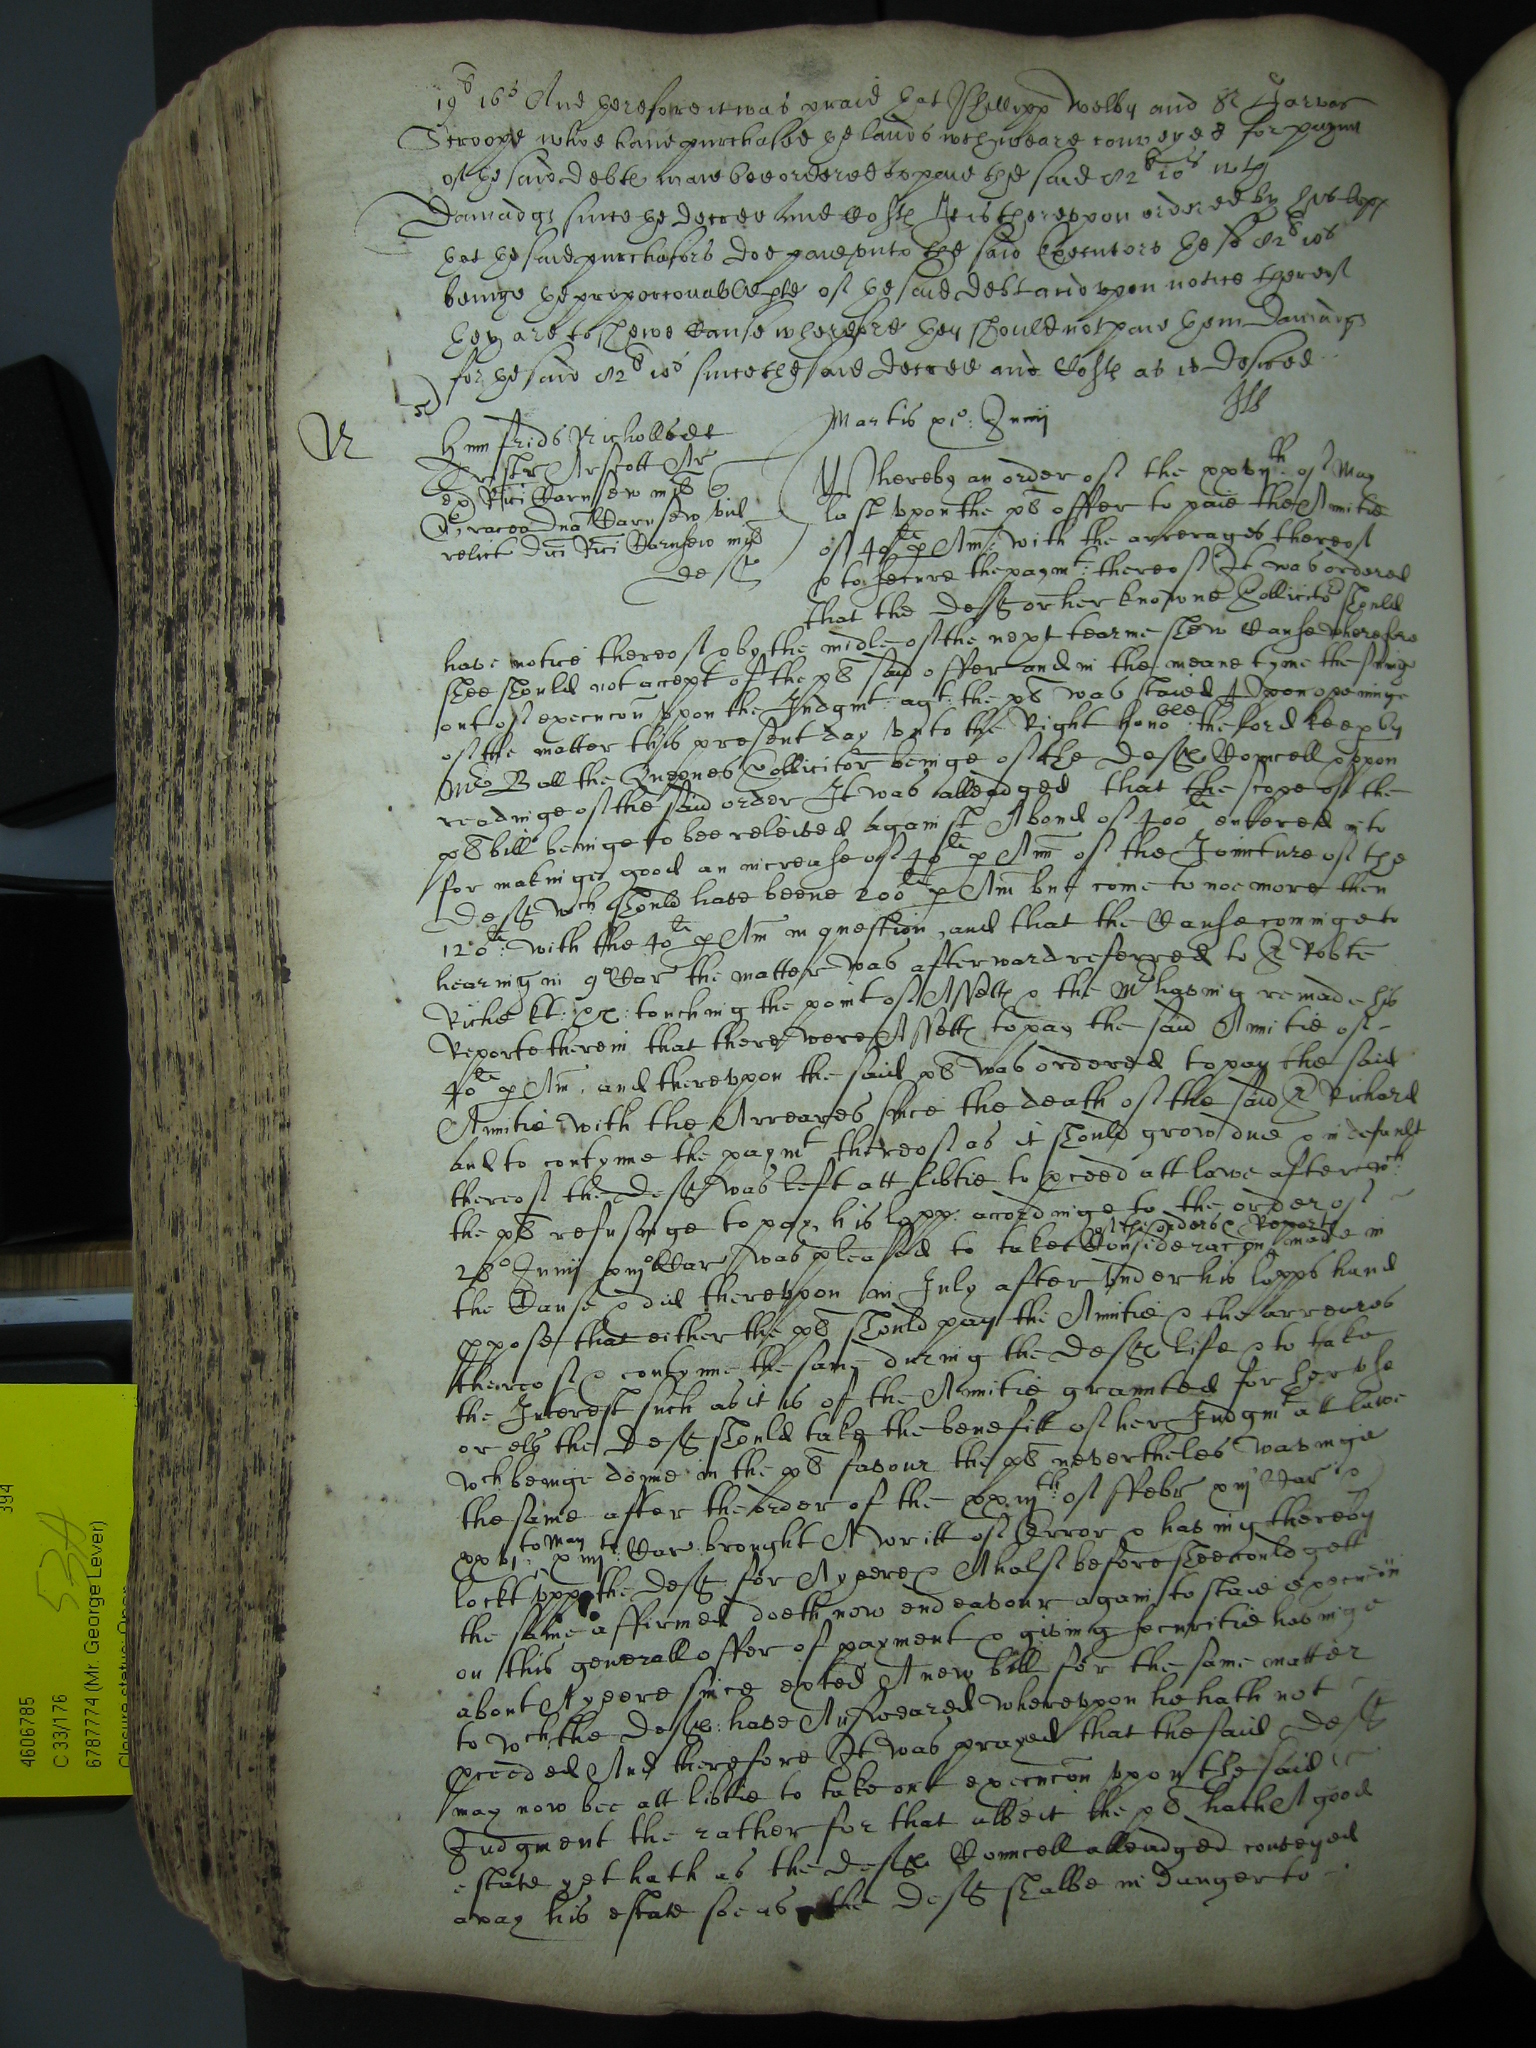 19li 16s And therefore it was praid that Phillipp Welby and Sr Jarvas
Scroope whoe have purchased the lands wch weare conveyed for paymt
of the said debte maie bee ordered to paie the said 82li 10s wth
Damadgs since the decree and Costs It is therevpon ordered by his Lopp
that the said purchasors doe paie vnto the said Executors the sd 82li 10s
beinge the proporconable pte of the said debt and vpon notice thereof
they are to shewe Cause wherefore they should not paie them Damadgs
for the said 82li 10s since the said decree and Costs as is desired
Martis xio: Junij
Humfridus Nicholls et
Arscott Ar
Rici Carnsew mil
Dna Carnsew vid
relict dci Rici Carnsew mil
deft
Whereby an order of the xxvijth of May
last vpon the pl offer to paie the Annitie
of 40li p Ann: with the arrerages thereof
& to secure the paymt: thereof It was ordered
that the deft or her knowne Sollicitor should
have notice thereof & by the midle of the next tearme shew Cause wherefore
shee should not accept of the pl said offer and in the meane tyme the suinge
out of execucon vpon the Judgmt: agt: the pl was staied, Vpon openinge
of the matter this present day vnto the Right honoble: the lord keep by
Mr Ball the Queenes Sollicitor beinge of the defts Councell & vpon
readinge of the said order It was alleadged that the scope of the
pl bill beinge to bee releived against A bond of 400li entered into
for makinge good an increase of 40li p Ann of the Joincture of the
deft wch should have beene 200li p Ann but come to noe more then
120li: with the 40li p Ann in question, and that the Cause cominge to
hearing in 9 Car the matter was afterward referred to Sr Robte
Riche kt: &c: touching the point of Assetts & the Mr having remade his
Reporte therein that there were Assetts to pay the said Annitie of
40li p Ann, and therevpon the said pl was ordered to pay the said
Annitie with the Arreares since the death of the said Sr Richard
and to contynue the paymt thereof as it should grow due & in default
thereof the deft was left att libtie to pceed att lawe after wch:
the pl refusinge to pay, his lopp. accordinge to the order of
28o Junij xijo Car was pleased to take Consideracon of the orders & Reports made in
the Cause & did therevpon in July after vnder his lopps hand
ppose that either the pl should pay the Annitie & the arreares
thereof & contynue the same during the defts life & to take
the Interest such as it is of the Annitie graunted for her life
or els the deft should take the benefitt of her Judgmt att lawe
wch beinge donne in the pl favour the pl neverthelesse waivinge
the same after the order of the xxiijth: of ffebr xij Car &
xxvjto May xiijo: Car brought A writt of Error & having thereby
lockt vpp the deft for A yeere & A halfe before shee could gett
the same affirmed doeth now endeavour againe to staie execucon
on this generall offer of payment & giving securitie havinge
about A yeere since exted A new bill for the same matter
to wch the deft: have Answeared wherevpon he hath not
pceeded And therefore It was prayed that the said deft
may now bee att libtie to take out execucon vpon the said
Judgment the rather for that albeit the pl hath A good
estate yet hath as the defts Councell alleadged conveyed
away his estate soe as the deft shalbe in danger to
4606785
C 33/176
6787774 (Mr. George Lever)
Closure status: Open
394
534